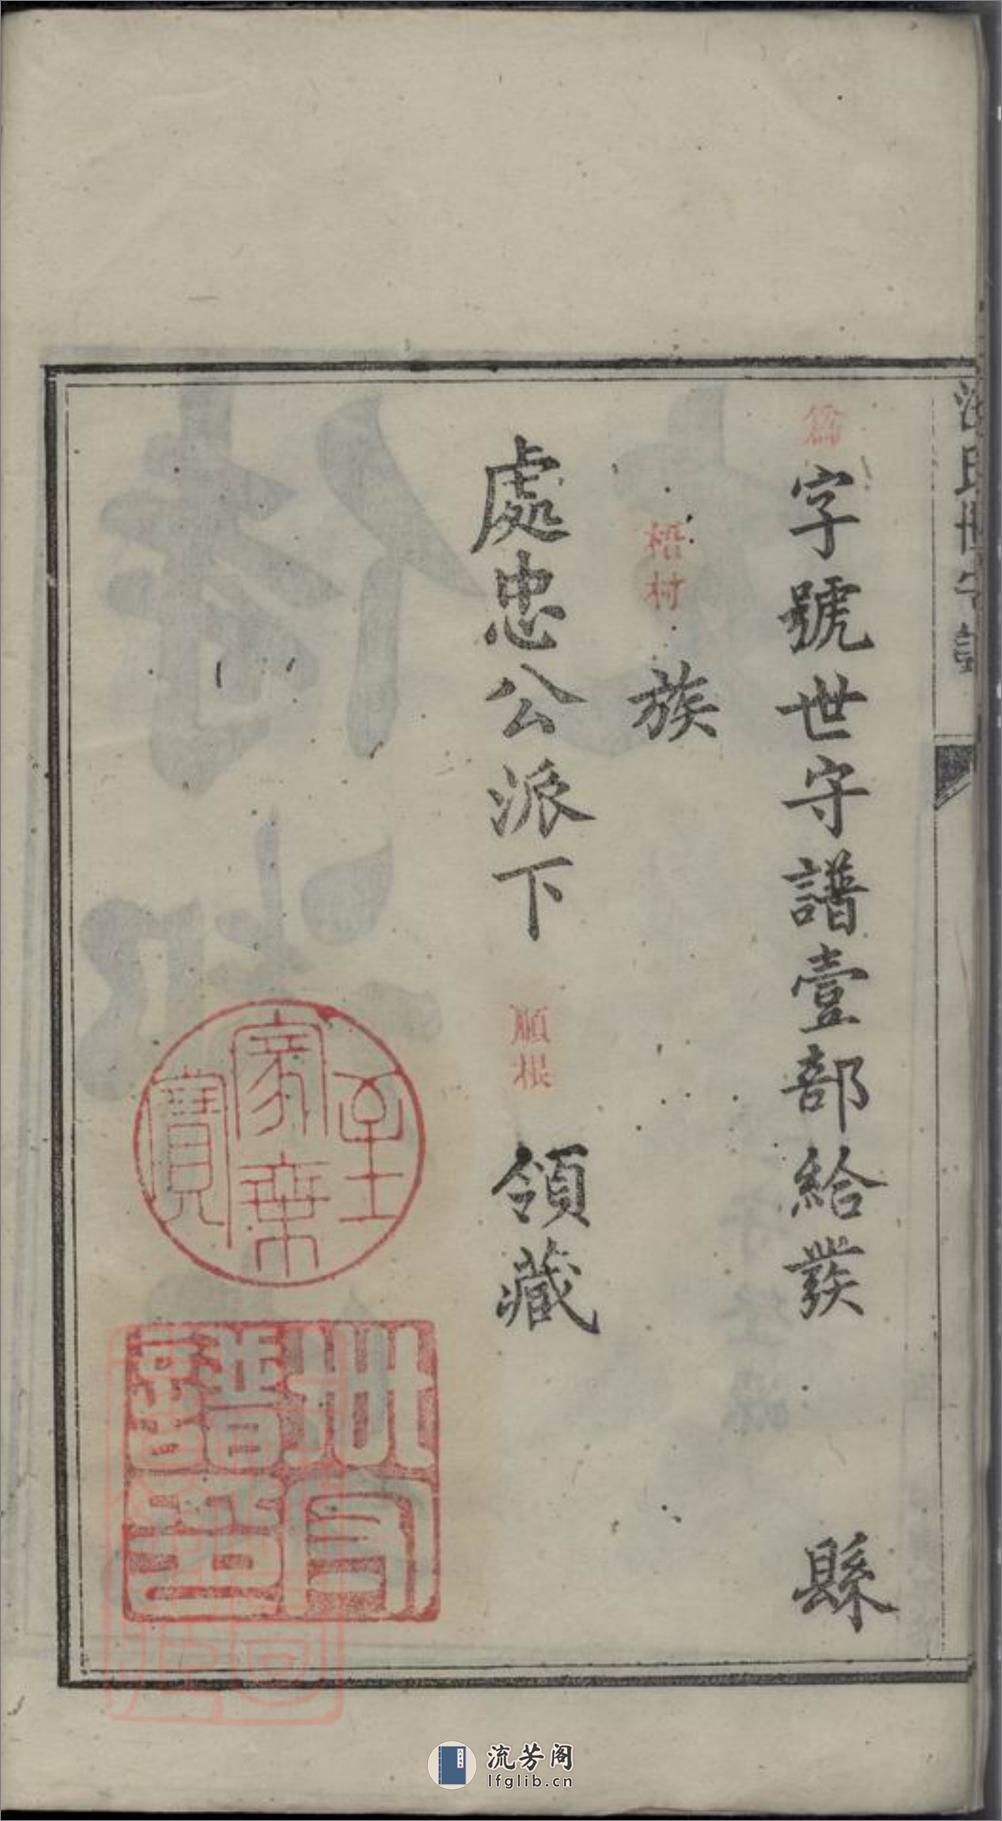 爲字號世守譜壹部給發 縣
梧村 族
處忠公派下 順根 領藏
至
家乘
寶
世守
譜印
流芳阁
lfglib.cn